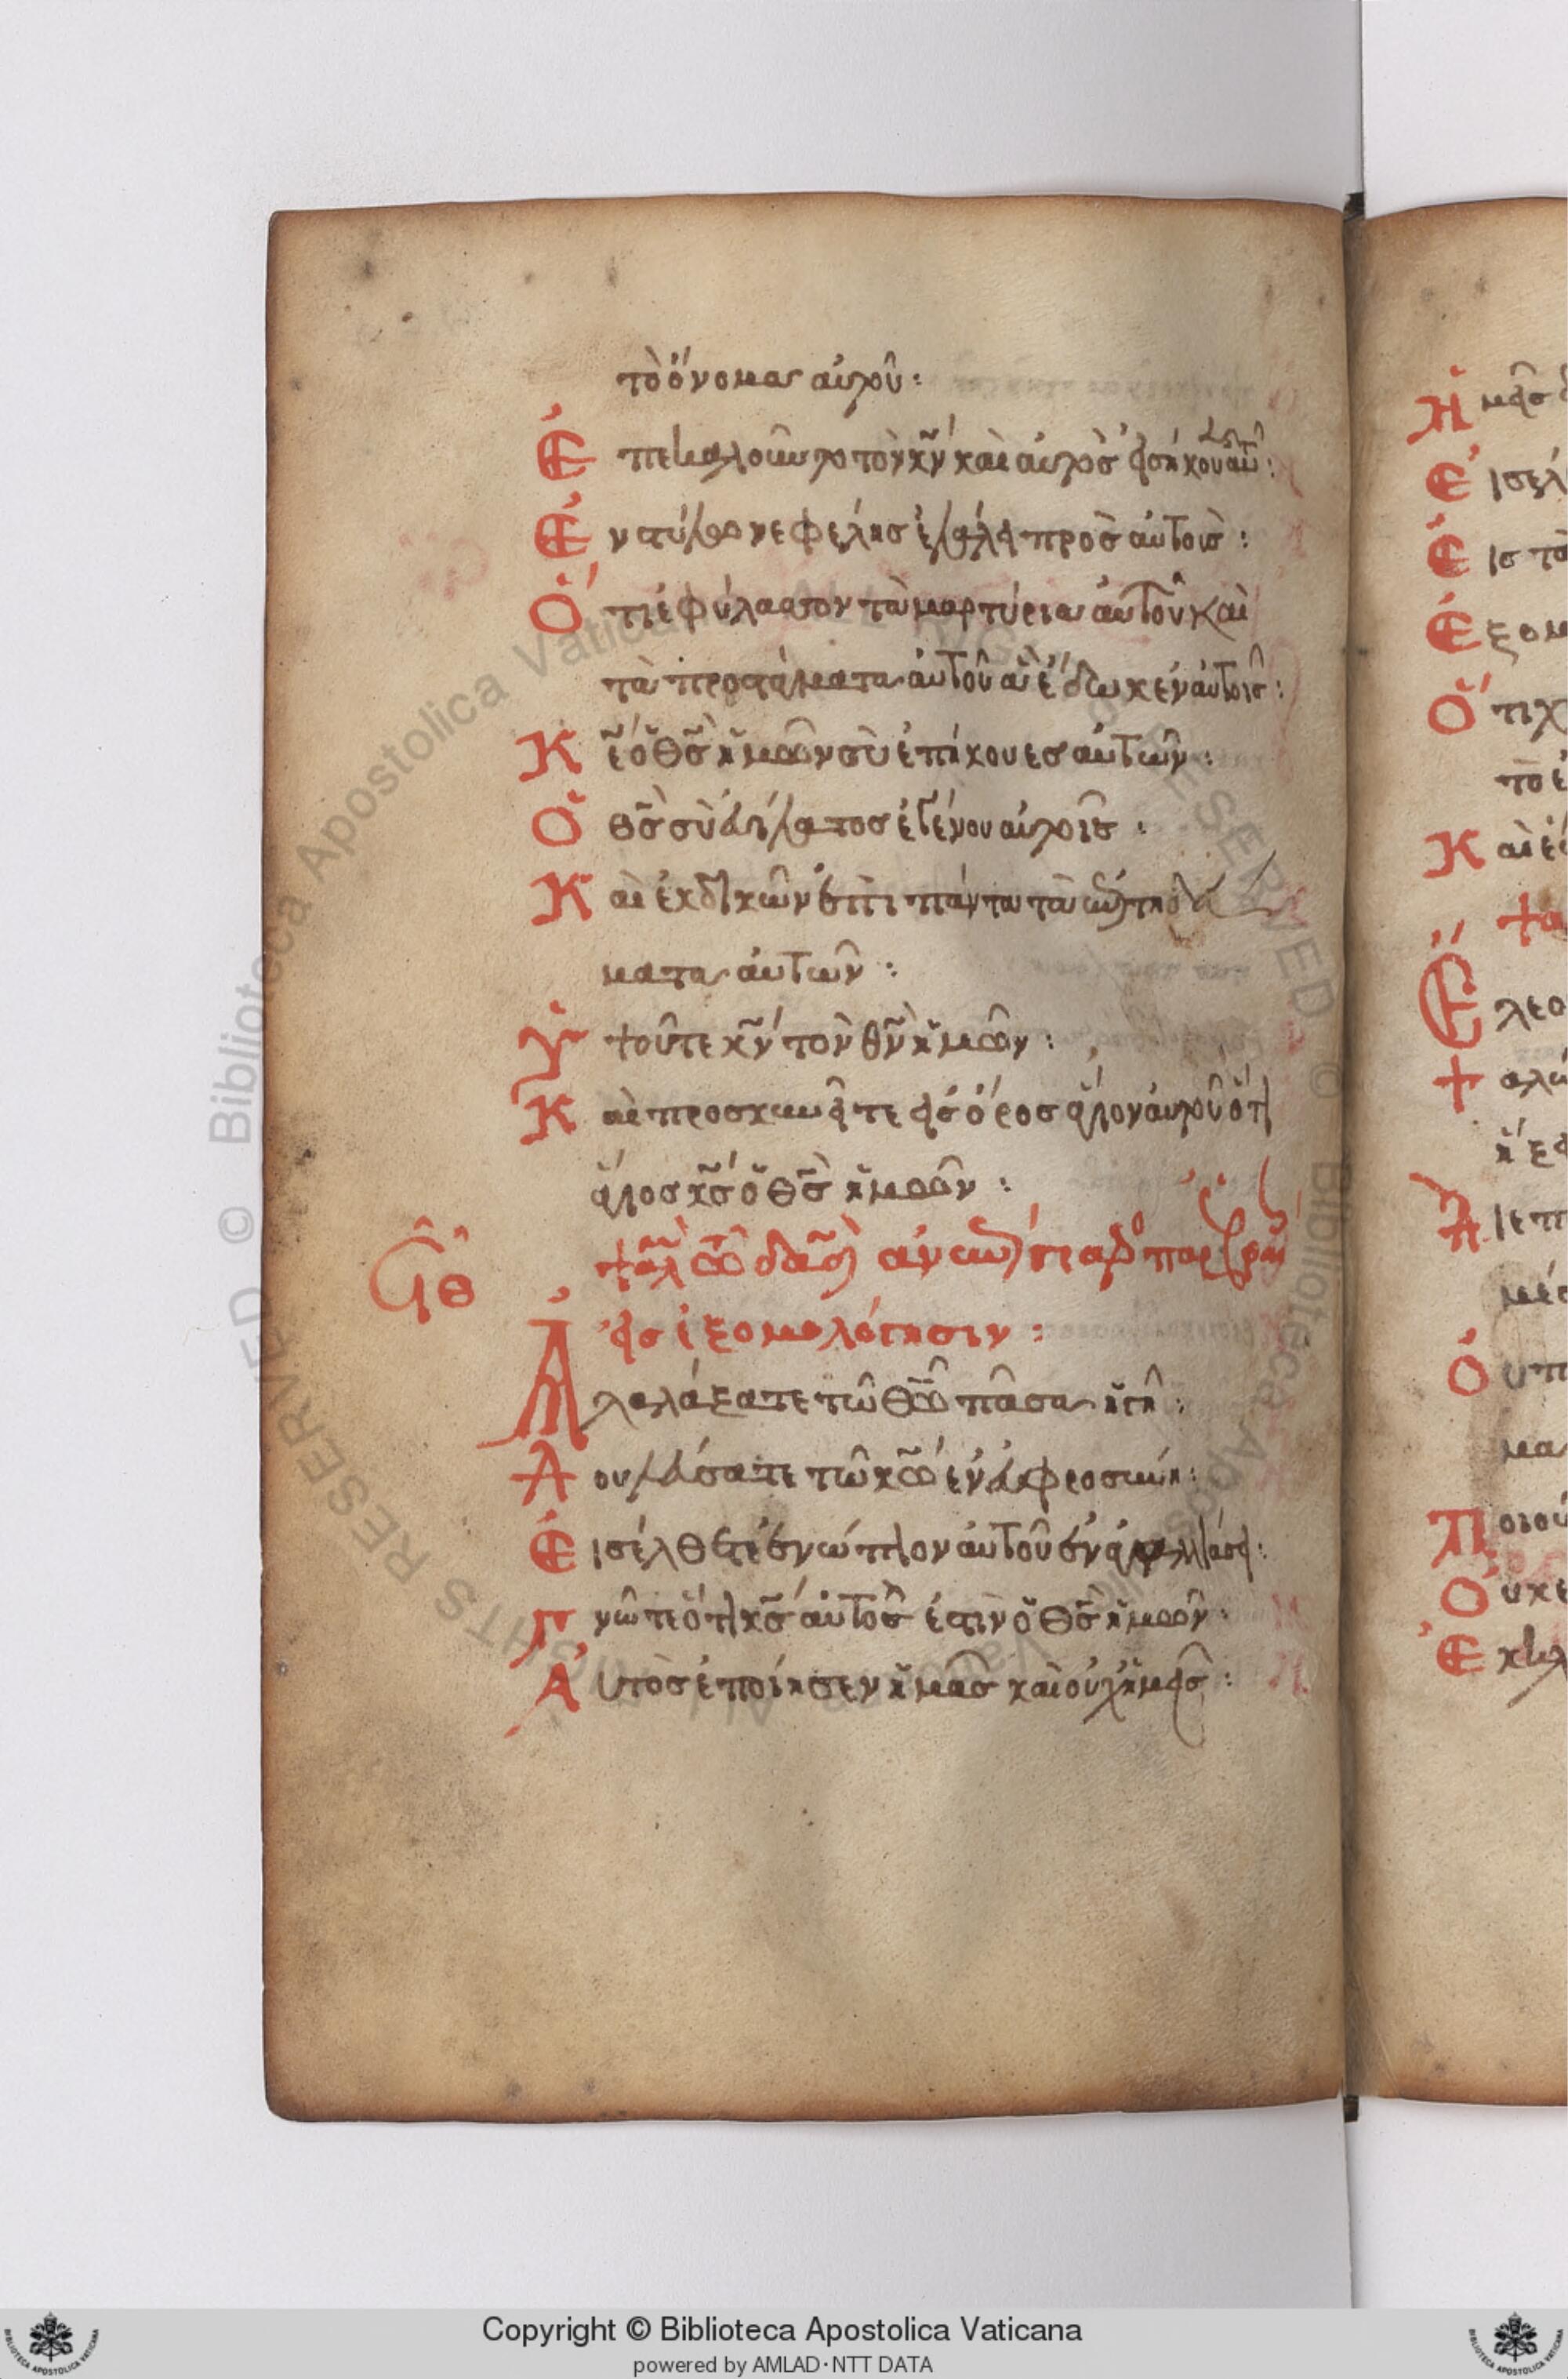 τὸ ὄνομα αὐτοῦ:
Ἐπεκαλοῦντο τὸν κ̅ν̅ καὶ αὐτὸς εἰσήκουεν αὐτῶν:
Ἐν στύλω νεφέλης ἐλάλει πρὸς αὐτοὺς:
Ὅτι ἐφύλασσον τὰ μαρτύρια αὐτοῦ καὶ
τὰ προστάγματα αὐτοῦ ἃ ἔδωκεν αὐτοῖς:
Κε̅ ὁ θς̅ ἡμῶν σὺ ἐπήκουες αὐτῶν:
Ὁ θς̅ σὺ εὐίλατος ἐγένου αὐτοῖς:
Καὶ ἐκδικῶν ἐπὶ πάντα τὰ ἐπιτηδεύ
ματα αὐτῶν:
Ὑψοῦτε κν̅ τὸν θν̅ ἡμῶν:
Καὶ προσκυνεῖτε εἰς ὄρος ἅγιον αὐτοῦ ὅτι
ἅγιος κς̅ ὁ θς̅ ἡμῶν:
ϟθ
εἰς ἐξομολόγησιν:
Ἀλαλάξατε τῶ θω̅ πᾶσα ἡ γῆ:
Δουλεύσατε τῶ κω̅ ἐν εὐφροσύνη:
Εἰσέλθετε ἐνώπιον αὐτοῦ ἐν ἀγαλλιάσει:
Γνῶτε ὅτι κς̅ αὐτός ἐστὶν ὁ θς̅ ἡμῶν:
Αὐτὸς ἐποίησεν ἡμᾶς καὶ οὐχ ἡμεῖς:
Copyright © Biblioteca Apostolica Vaticana
powered by AMLAD·NTT DATA